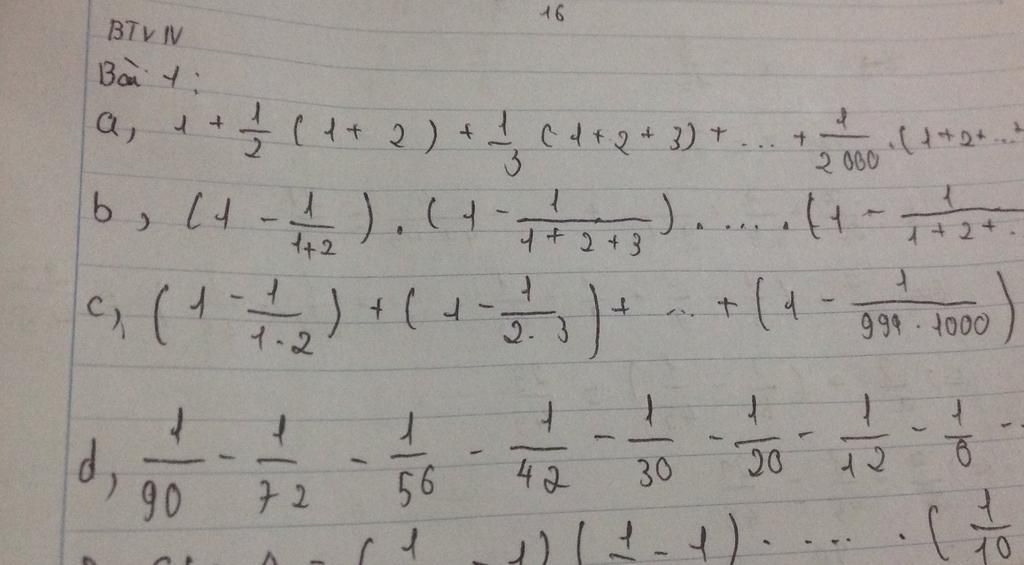 16
BTVN
Bài 1:
a, 1 + 1/2 (1 + 2) + 1/3 (1 + 2 + 3) + ... + 1/2000 . (1 + 2 + ...
b, (1 - 1/1+2) . (1 - 1/1+2+3) . .... . (1 - 1/1+2+.
c, (1 - 1/1.2) + (1 - 1/2.3) + ... + (1 - 1/999.1000)
d, 1/90 - 1/72 - 1/56 - 1/42 - 1/30 - 1/20 - 1/12 - 1/6 -
(1 - 1) (1 - 1) . .... . (1/10